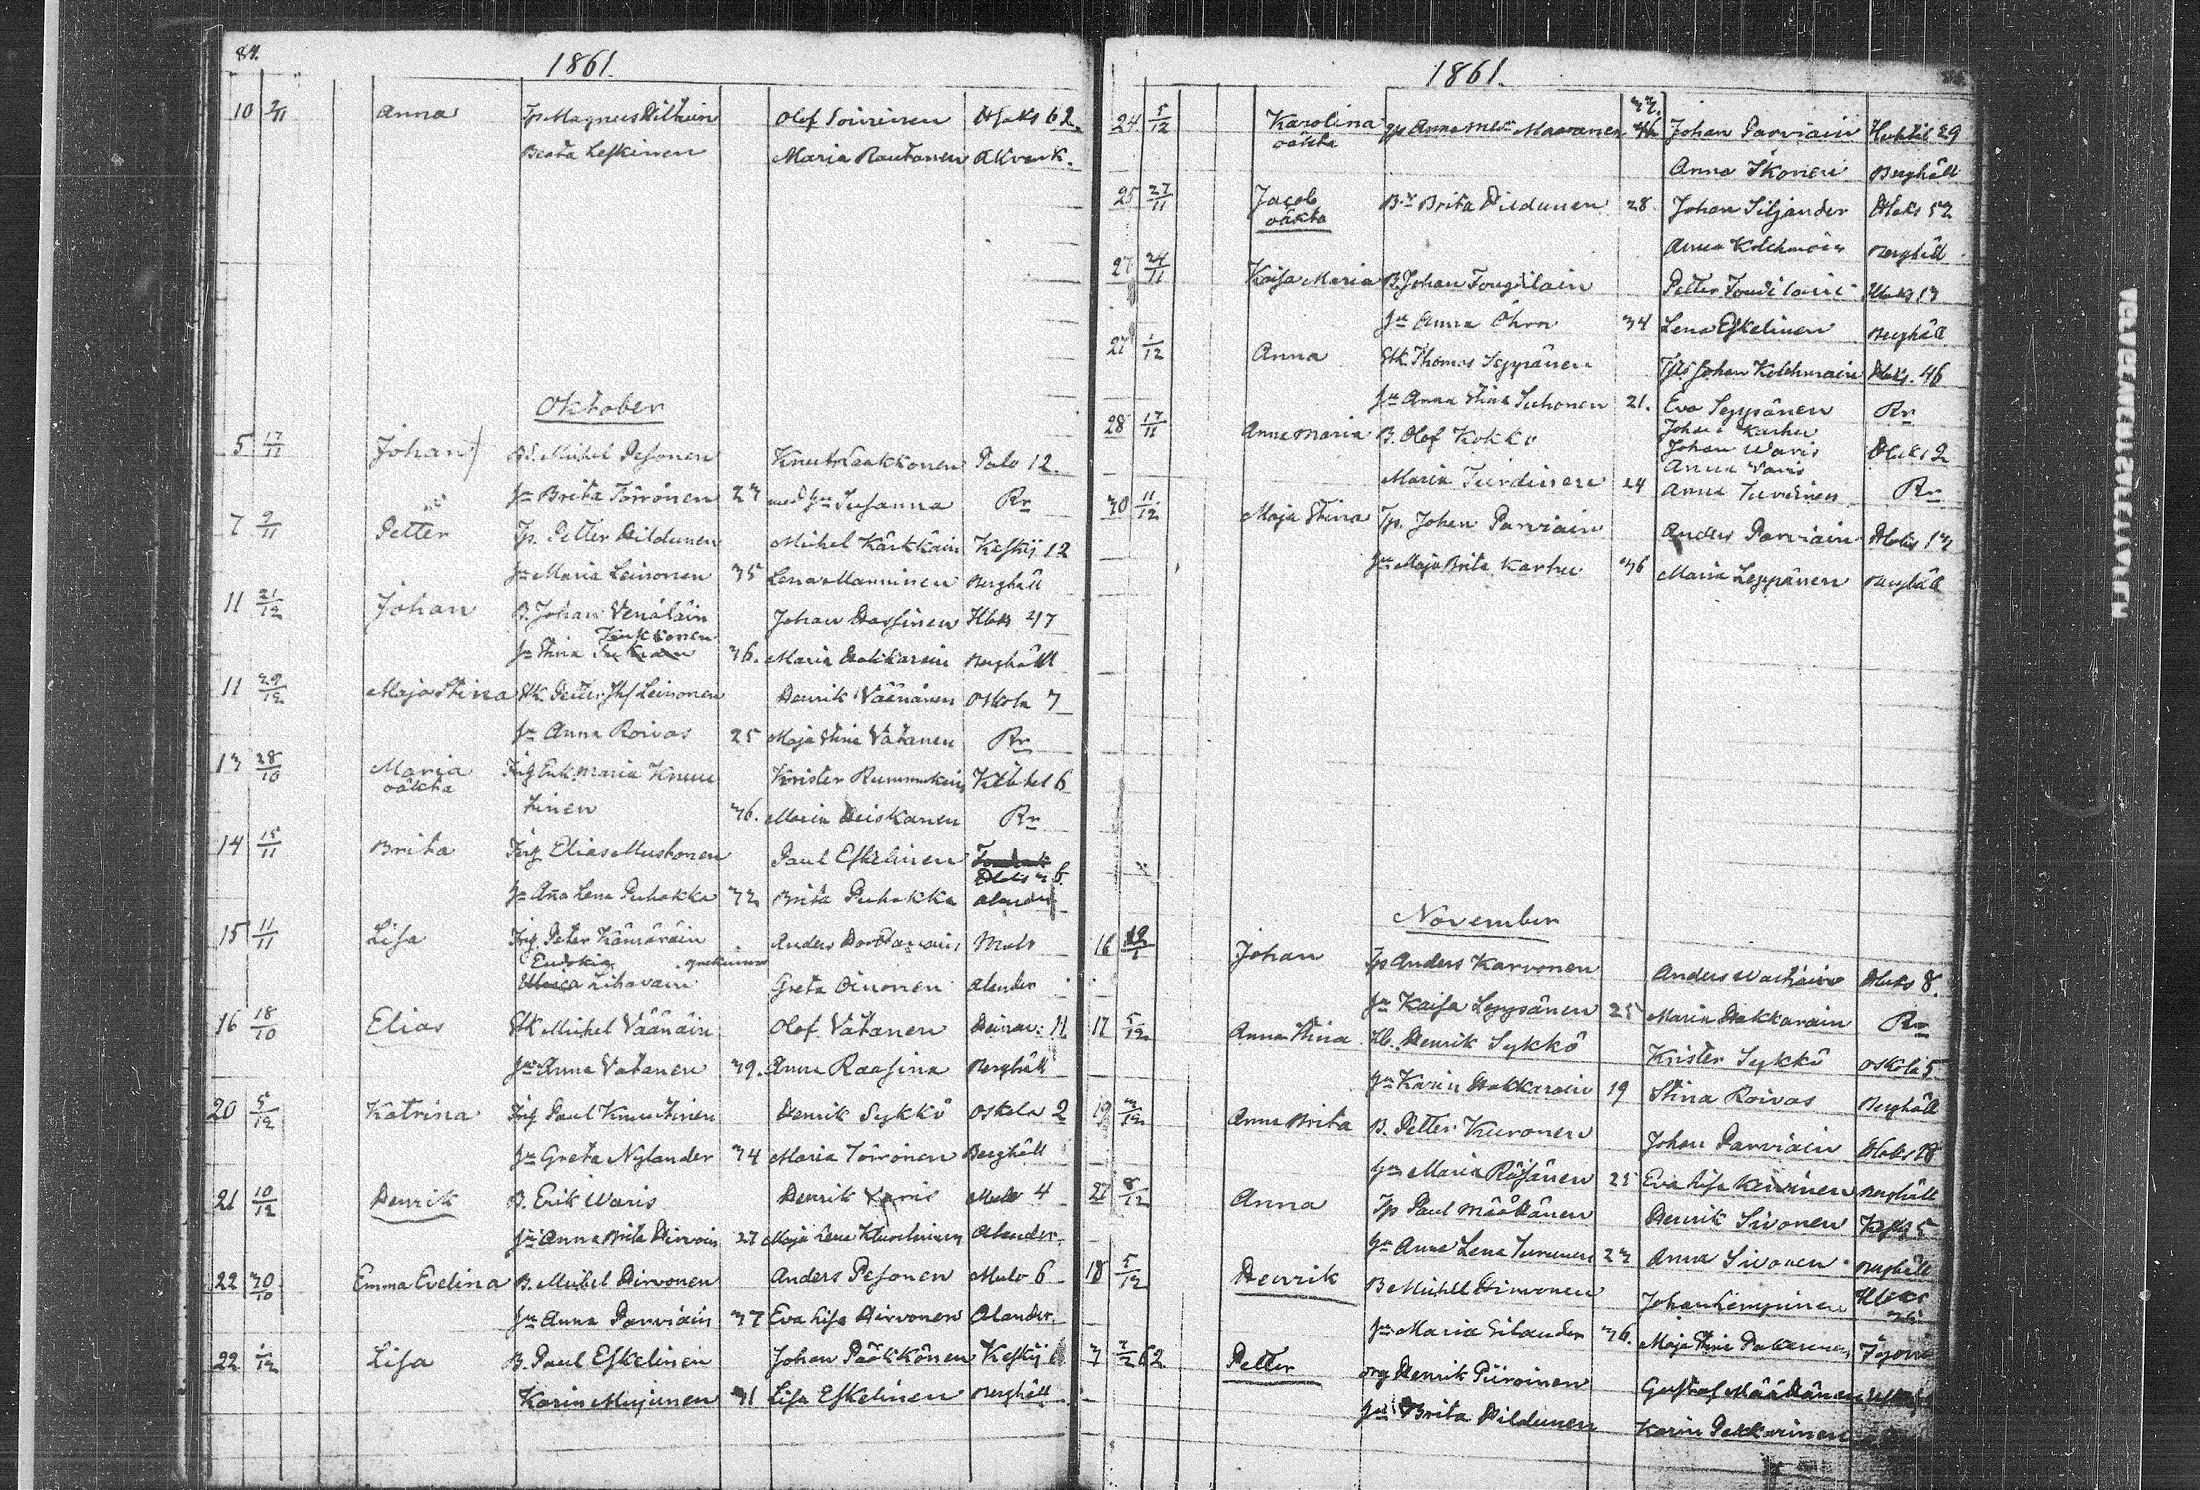 84.
1861.
10 2/11 Anna Tp Magnus Olof Soininen Hlaks 62.
Beata Leskinen Maria Rautanen
Oktober
5 17/11 Johan Michel Pesonen Knut Laakkonen Palo 12.
Jn Brita Törrönen 23 med hu Susanna Rr
7 9/11 Petter Tp. Petter Hildunen Michel Kärkkäin Keskij 12
Jn Maria Leinonen 35 Lena Manninen Berghäll
11 21/12 Johan B. Johan Venäläin Johan Hlaks 47
Jn Stina 36. Maria Berghäll
11 29/12 Maja Stina Stk Petter Leinonen Henrik Väänänen Oskola 7
Jn Anna Roivas 25 Maja Stina Vatanen Rr
13 28/10 Maria Inh Enk. Maria Knuu Krister Rummukain 6
oäkta
tinen 36. Maria Heiskanen Rr
14 15/11 Brita Inh Elias Mustonen Paul Eskelinen
6.
Jn Anna Lena Puhakka 32 Brita Puhakka Alander
15 11/11 Lisa Inh. Peter Kämäräin Anders Mulo
Greta Oinonen Alander
16 18/10 Elias Stk Michel Väänäin Olof Vatanen Heinav: 11
Jn Anna Vatanen 39. Anna Raasina Berghäll
20 5/12 Katrina Inh Paul Knuutinen Henrik Sykkö Oskola 2
Jn Greta Nylander 34 Maria Törrönen Berghäll
21 10/12 Henrik B. Erik Waris Henrik Varis Mulo 4
Jn Anna Brita Hirvoin 27 Maja Lena Alander.
22 30/10 Emma Evelina B. Michel Hirvonen Anders Pesonen Mulo 6
Jn Anna Parviain 37 Eva Lisa Hirvonen Alander.
22 1/12 Lisa B. Paul Eskelinen Johan Pääkkönen Keskij
Karin Mujunen 31 Lisa Eskelinen Berghäll
1861.
24 5/12 Karolina Maaranen Johan Parviain 29
oäkta Anna Ikonen Berghäll
25 27/11 Jacob Brita Hildunen 28 Johan Siljander Hlaks 52
oäkta
Anna Kolehmain Berghäll
27 24/11 Kaisa Maria B. Johan Petter Hlaks 13
Jn Anna Öhrn 34 Lena Eskelinen Berghäll
27 1/12 Anna Stk. Thomas Seppänen Johan Kolehmain Hlaks. 46
Jn Anna Stina Suhonen 21. Eva Seppänen Rr
28 17/11 Anna Maria B. Olof Kokko Johan Karhu
Johan Waris Hlaks 2
Anna Varis
Maria Turdinen 24 Anna Rr
30 11/12 Maja Stina Tp. Johan Parviain Anders Parviain Hlaks 13
Jn Maja Brita Karhu 36 Maria Leppänen Berghäll
November
16 Johan Tp Anders Karvonen Anders Hlaks 8.
Jn Kaisa Leppänen 25 Maria Hakkarain Rr
17 5/12 Anna Stina Henrik Sykkö Krister Sykkö Oskola 5
Jn Karin Hakkarain 19 Stina Roivas Berghäll
19 3/12 Anna Brita B. Petter Kuronen Johan Parviain Hlaks 18
Jn Maria Räsänen 25 Eva Lisa Berghäll
27 8/12 Anna Tp Paul Määttänen Henrik Sivonen 5
Jn Anna Lena Turunen 23 Anna Sivonen Berghäll
18 5/12 Henrik B Michell Hirvonen Johan Lempinen
Jn Maria Silander 36. Maja Stina
3 62 Petter Henrik Piiroinen Gustaf Määttänen
Jn Brita Hildunen Karin Pekkarinen